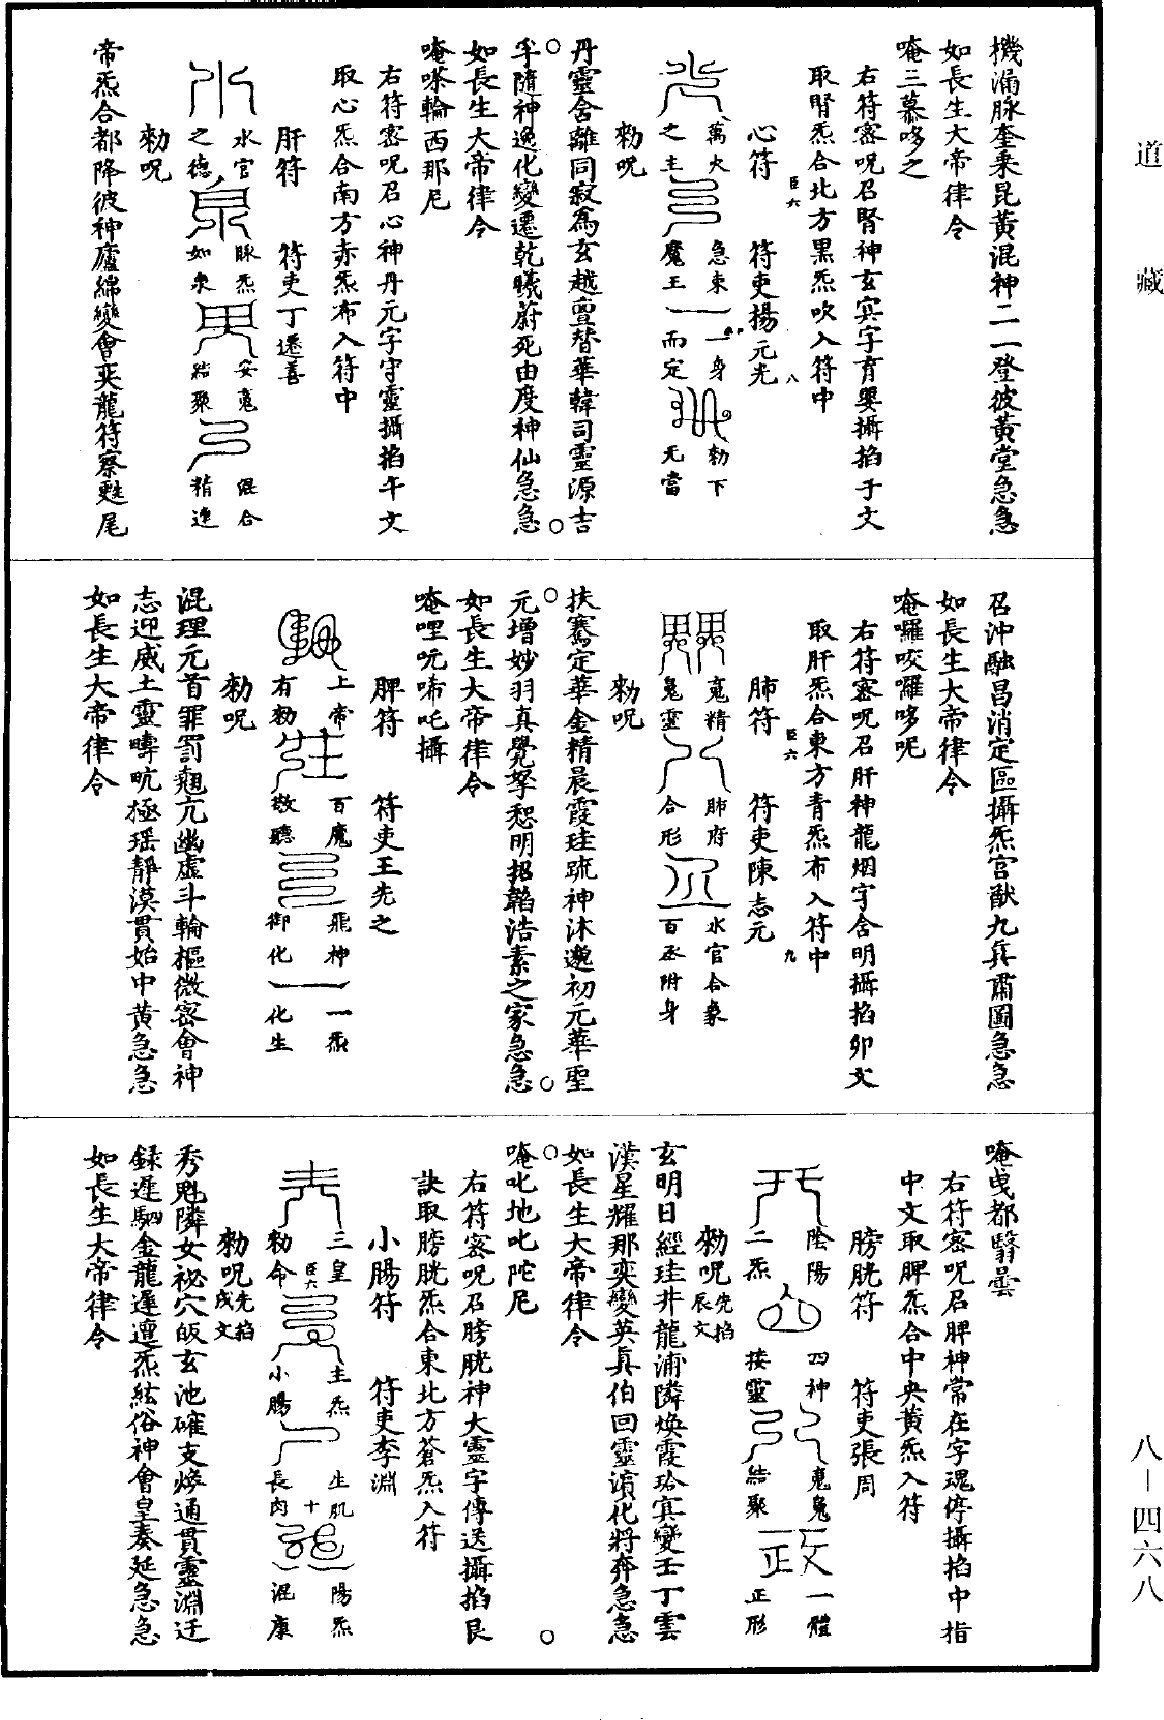 道藏
機湧脉奎乗昆黃混神二一登彼黃堂急急
如長生大帝律令
唵三慕哆之
右符密呪召腎神玄㝠字育嬰攝掐子文
取腎炁合北方黑炁吹入符中
心符 符吏揚元先
萬火之主 急束魔王 一身而定 勑下无當
勑呪
丹靈含離同寂爲玄越亶替華韓司靈源吉
乎隨神逸化變遷乾曦蔚死由度神仙急急
如長生大帝律令
唵嗏輪西那尼
右符密呪召心神丹元字守靈攝掐午文
取心炁合南方赤炁布入符中
肝符 符吏丁遷善
水官之德 脉炁如泉 安䰟結聚 混合精進
勑呪
帝炁合都降彼神廬綿變會奕龍符察甦尾
召沖融昌消定區攝炁宮猷九兵肅圖急急
如長生大帝律令
唵囉咬囉哆呢
右符密呪召肝神龍烟字含明攝掐卯文
取肝炁合東方青炁布入符中
肺符 符吏陳志元
䰟精䰟靈 肺府合形 水官合象 百丞附身
勑呪
扶騫定華金精晨霞珪䟽神沐邈初元華聖
元增妙羽真覺孥恕明招韜浩素之家急急
如長生大帝律令
唵哩吭唏吒攝
脾符 符吏王先之
上帝有勑 百魔敬聽 飛神御化 一炁化生
勑呪
混理元首罪罰魁亢幽虛斗輪樞微密會神
志迎威土靈疇吭極瑶靜漠貫始中黃急急
如長生大帝律令
唵曳都翳曇
右符密呪召脾神常在字魂停攝掐中指
中文取脾炁合中央黃炁入符
膀胱符 符吏張周
陰陽二炁 四神接靈 䰟䰟結聚 一體正形
勑呪先掐辰文
玄明日經珪井龍浦隣煥霞玱㝠變壬丁雲
漢星耀那奕變英真伯回靈濱化將奔急急
如長生大帝律令
唵叱地叱陀尼
右符密呪召膀胱神大靈字傳送攝掐艮
訣取膀胱炁合東北方蒼炁入符
小腸符 符吏李淵
三皇勑命 主炁小腸 生肌長肉 陽炁混康
勑呪先掐戌文
秀魁隣女祕穴皈玄池確支煥通貫靈淵迂
録遲駟金龍遲遭炁紘俗神會皇奏延急急
如長生大帝律令
八—四六八